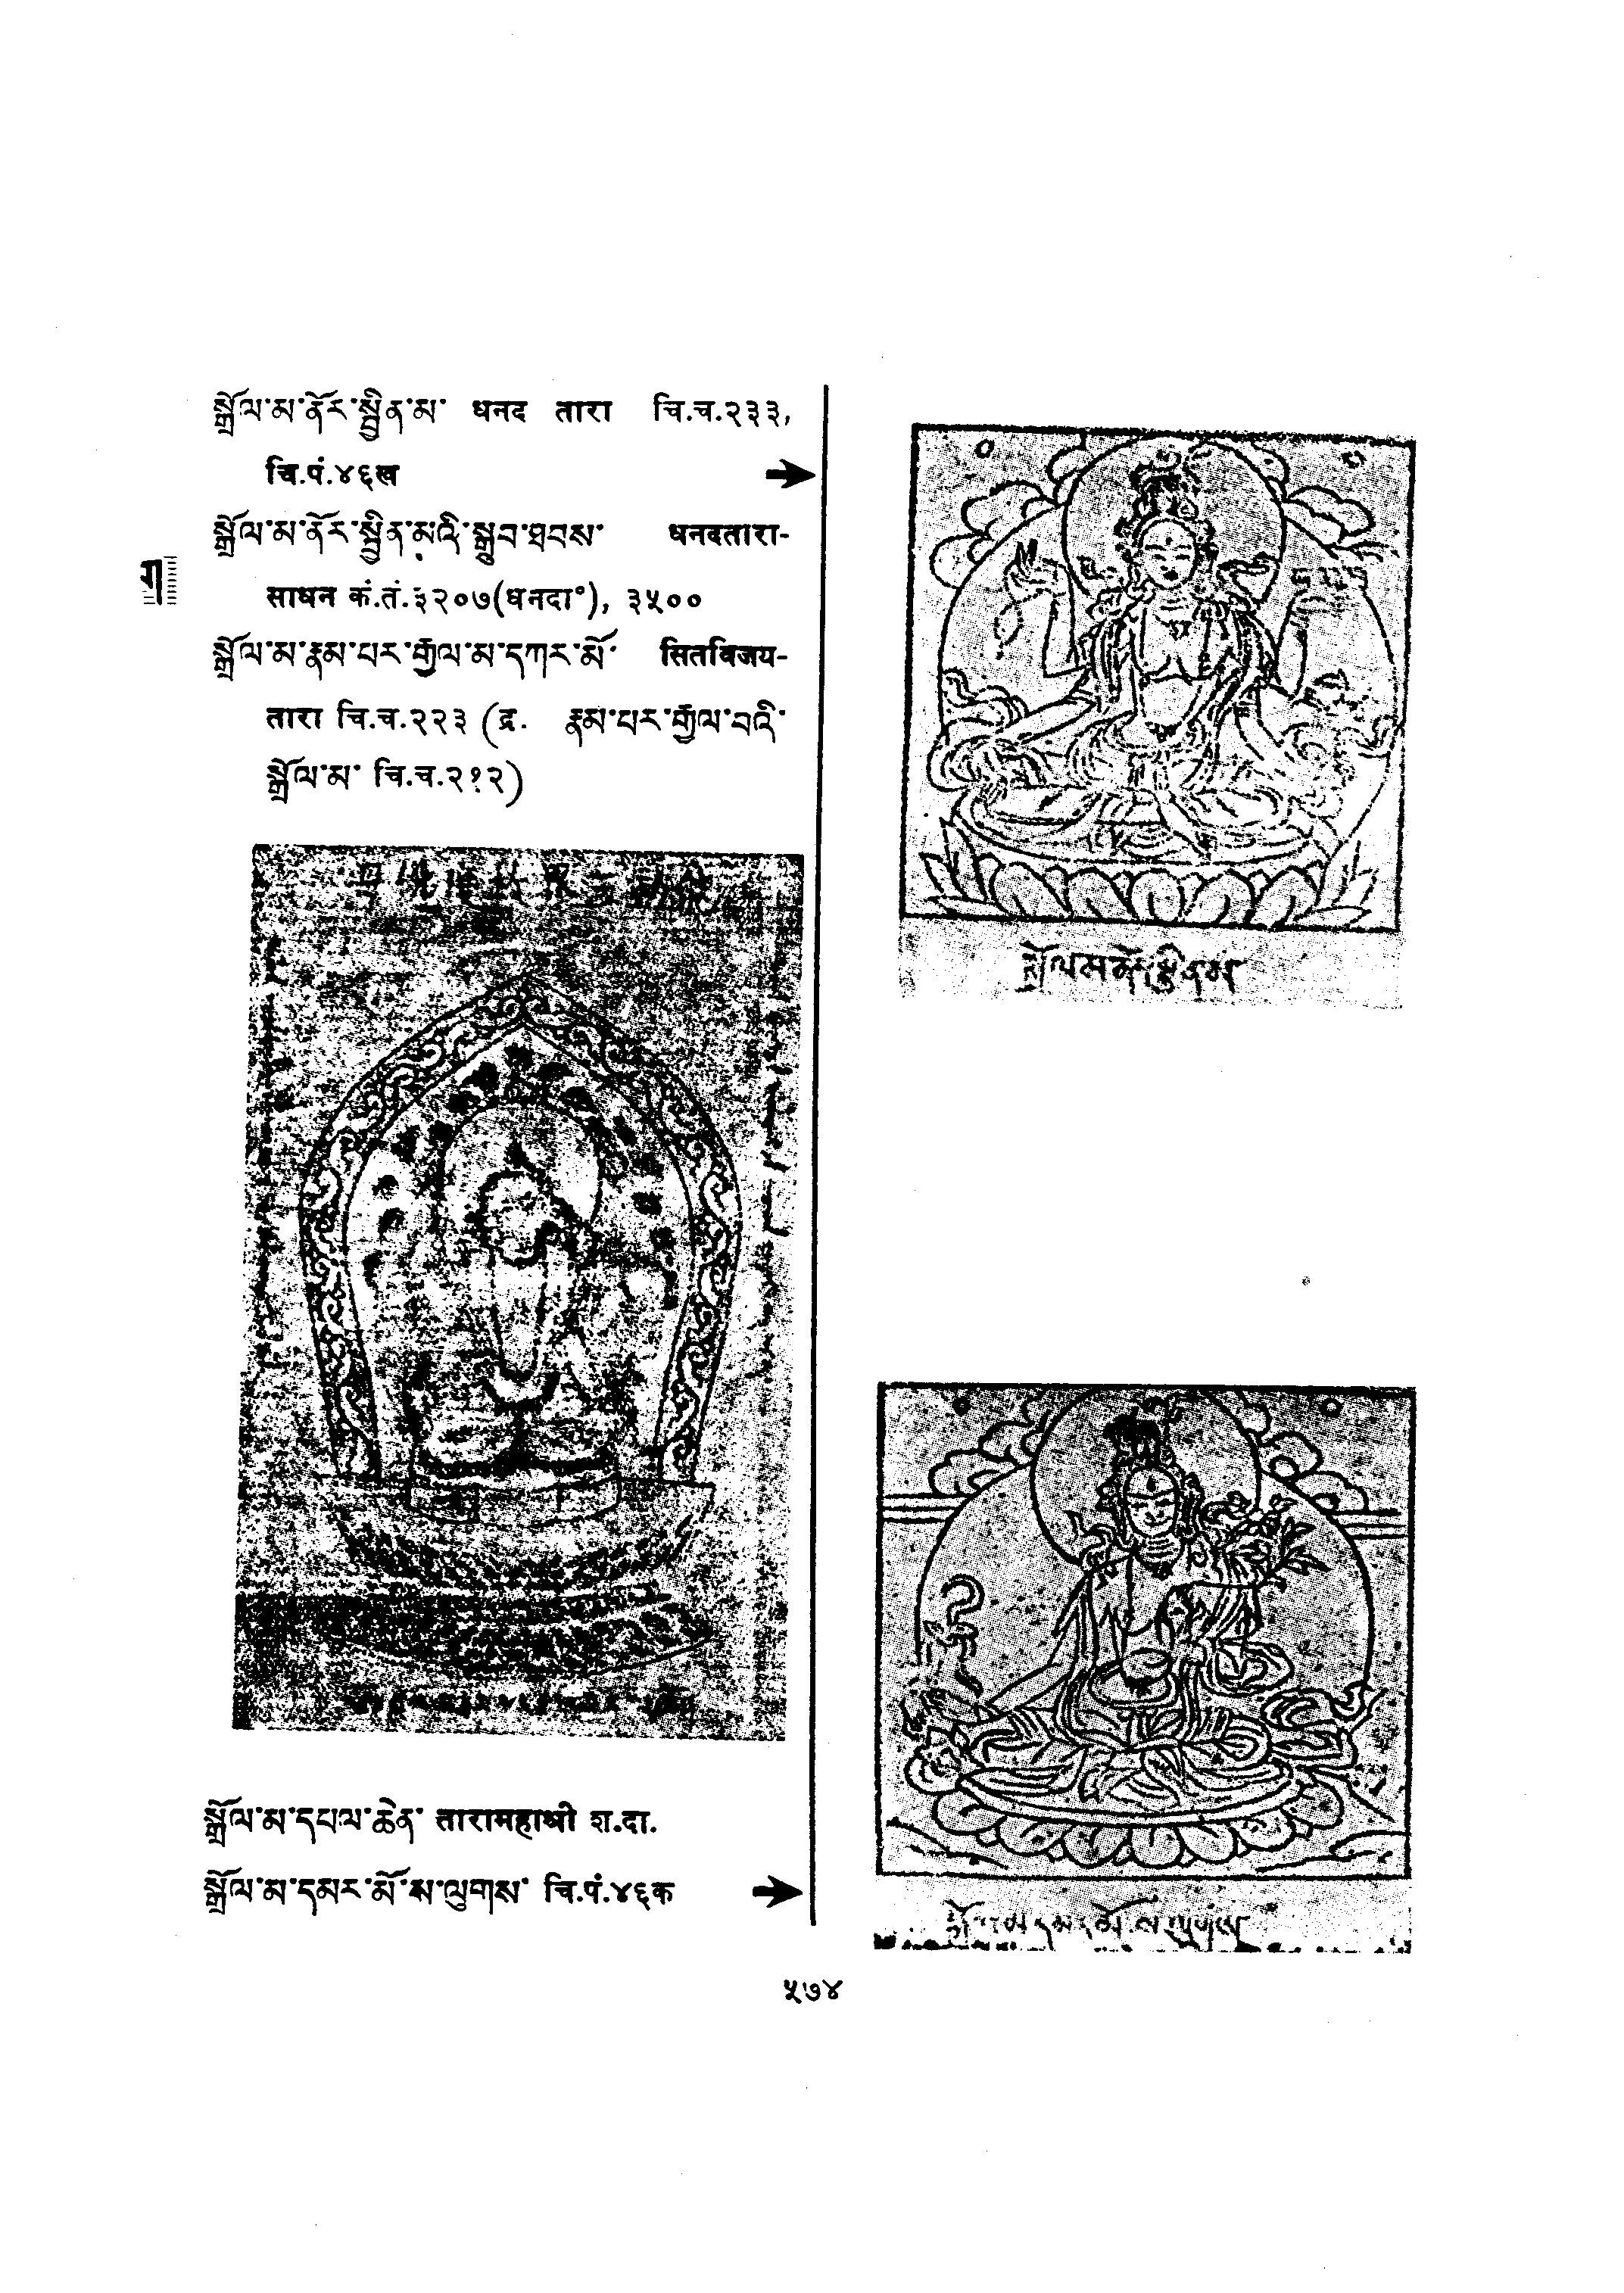 སྒྲོལ་མ་ནོར་སྦྱིན་མ་ धनद तारा चि.च.२३३,
चि.पं.४६ख →
སྒྲོལ་མ་ནོར་སྦྱིན་མའི་སྒྲུབ་ཐབས་ धनदतारा-
साधन कं.तं.३२०७(धनदा°), ३५००
སྒྲོལ་མ་རྣམ་པར་རྒྱལ་མ་དཀར་མོ་ सितविजय-
तारा चि.च.२२३ (द्र. རྣམ་པར་རྒྱལ་བའི་
སྒྲོལ་མ་ चि.च.२१२)
སྒྲོལ་མ་དཔལ་ཆེན་ तारामहाश्री श.दा.
སྒྲོལ་མ་དམར་མོ་ས་ལུགས་ चि.पं.४६क →
ག
५७४